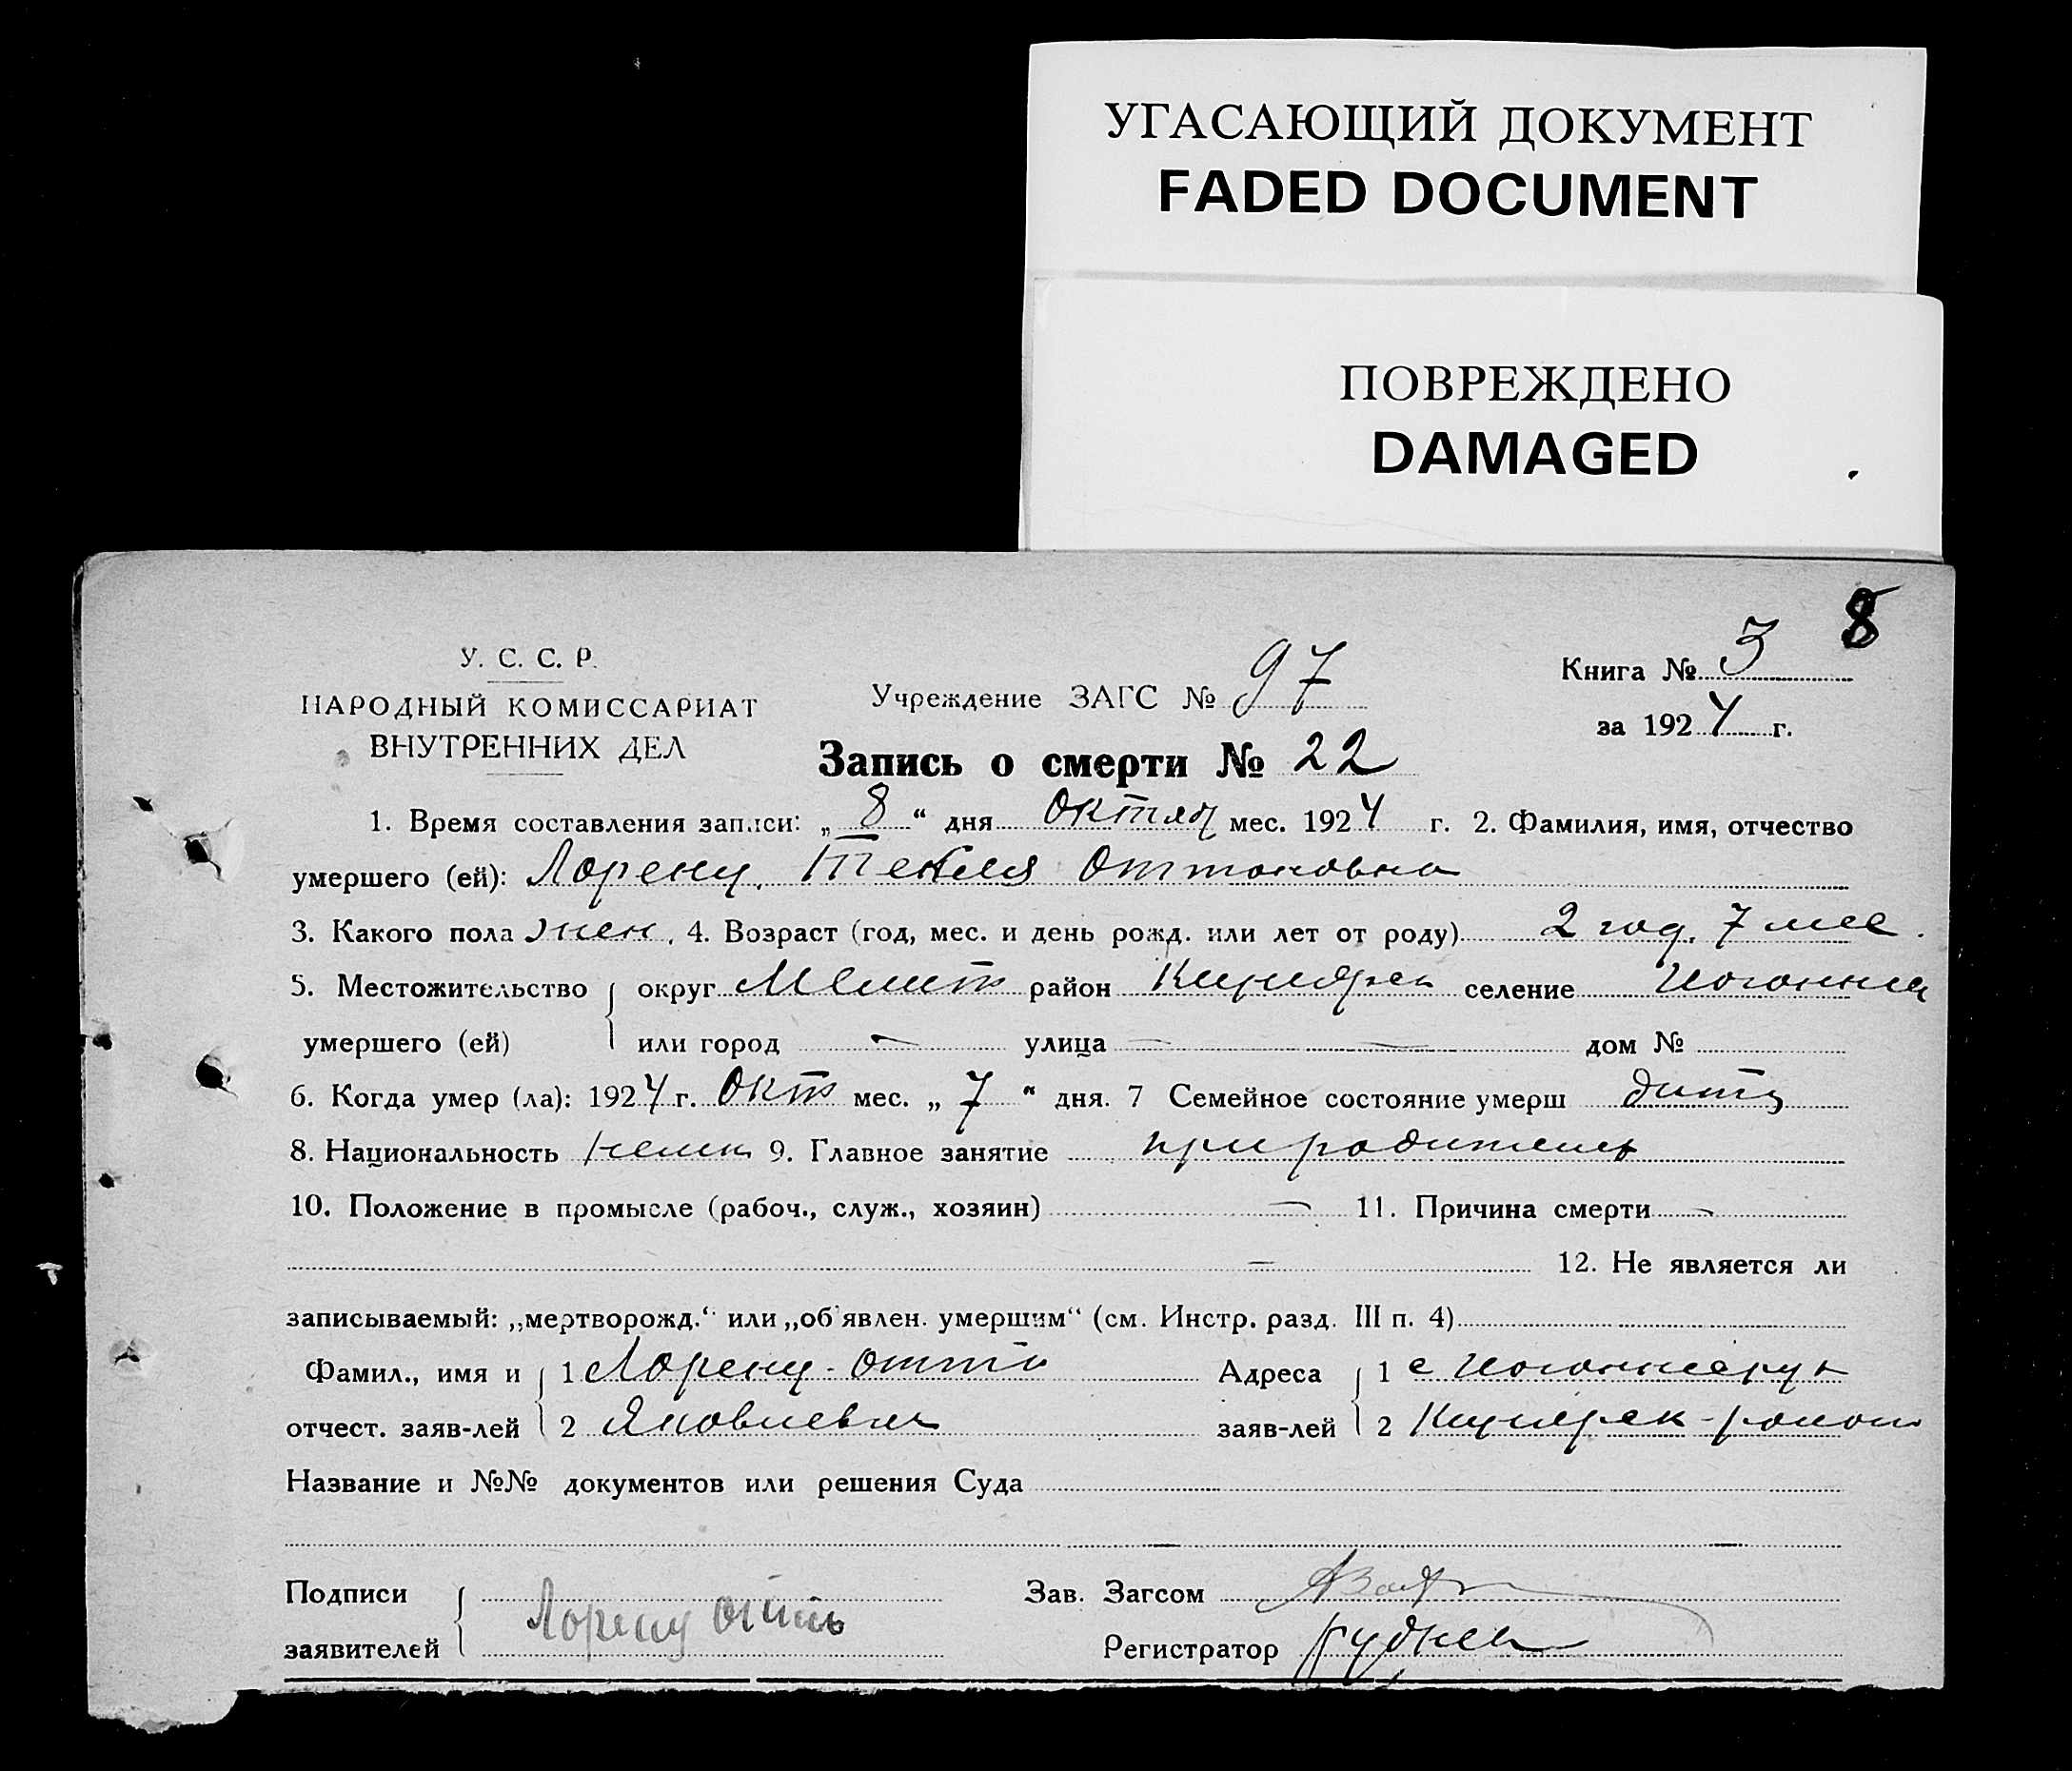 УГАСАЮЩИЙ ДОКУМЕНТ
FADED DOCUMENT
ПОВРЕЖДЕНО
DAMAGED
8
У. С. С. Р.
НАРОДНЫЙ КОМИССАРИАТ
ВНУТРЕННИХ ДЕЛ
Учреждение ЗАГС № 97
Книга № 3
за 1924 г.
Запись о смерти № 22
1. Время составления записи: „ 8 “ дня Октяб мес. 1924 г. 2. Фамилия, имя, отчество
умершего (ей): Лоренц Текля Оттоновна
3. Какого пола жен. 4. Возраст (год, мес. и день рожд. или лет от роду) 2 год. 7 мес.
5. Местожительство округ Мелит район селение
умершего (ей) или город — улица — — дом №
6. Когда умер (ла): 1924 г. Окт мес. „ 7 “ дня. 7 Семейное состояние умерш дитя
8. Национальность немк 9. Главное занятие при родителях
10. Положение в промысле (рабоч., служ., хозяин) — 11. Причина смерти —
— 12. Не является ли
записываемый: „мертворожд.“ или „об'явлен. умершим“ (см. Инстр. разд. III п. 4)
Фамил., имя и 1 Лоренц - Отто Адреса 1 с
отчест. заяв-лей 2 Яковлевич заяв-лей 2
Название и №№ документов или решения Суда
Подписи Лоренц Отто Зав. Загсом
заявителей Регистратор